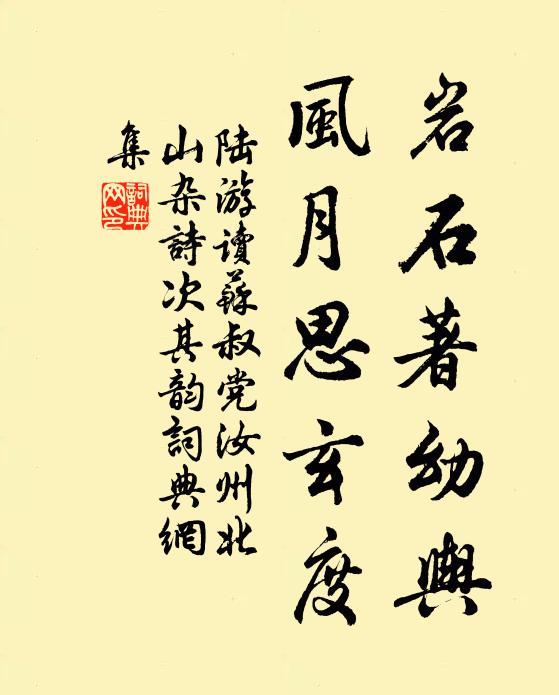 岩石著幼輿
風月思玄度
陆游读蘇叔党汝州北
山杂詩次其韵詞典網
集
詞典
网印